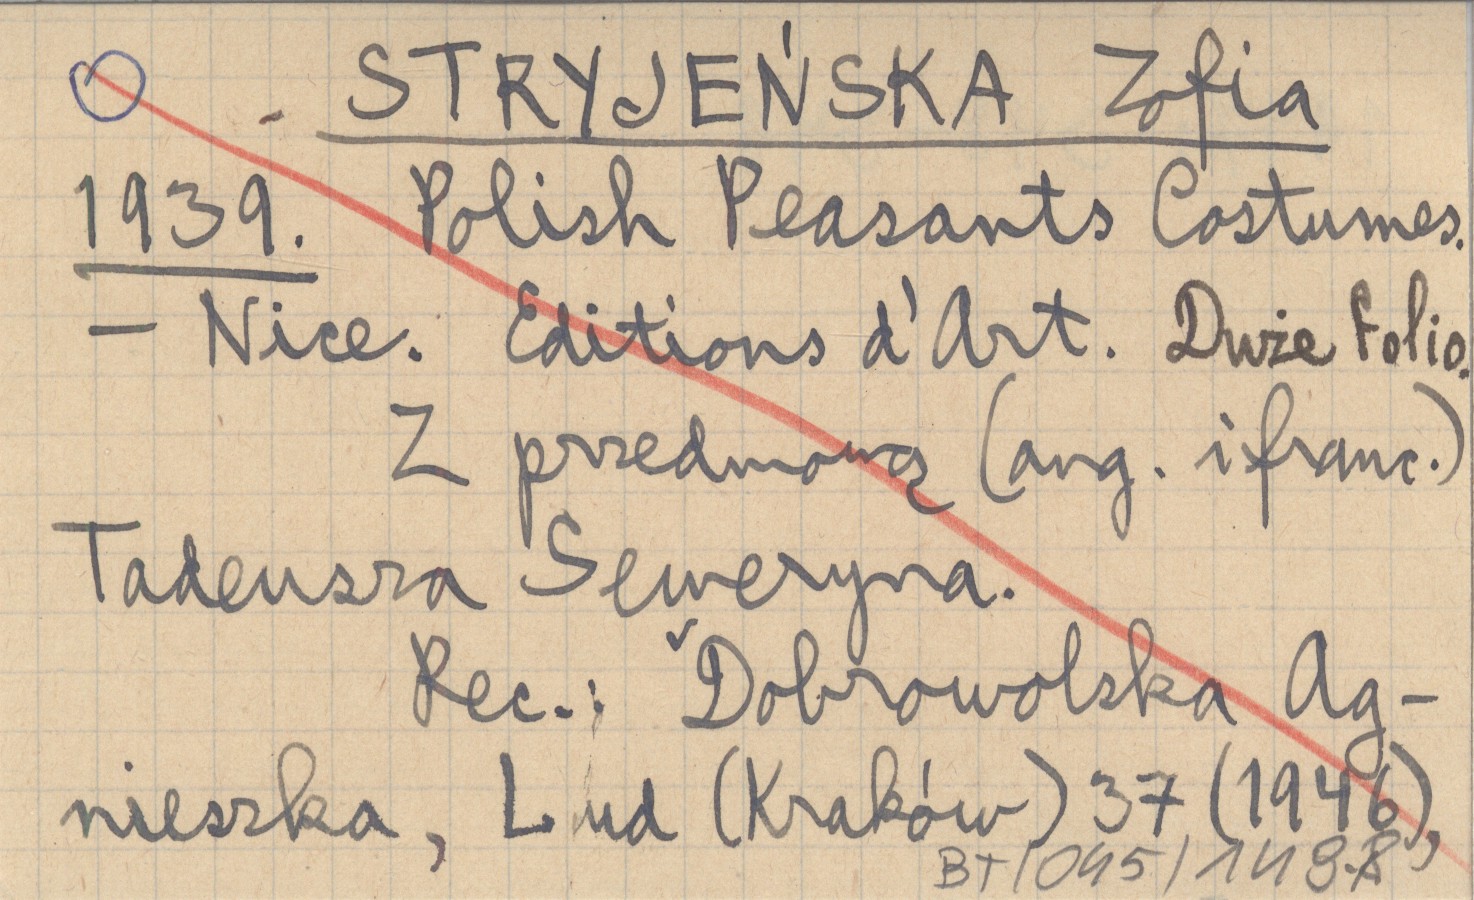 STRYJEŃSKA Zofia
1939. Polish Peasants Costumes.
— Nice. Editions d'Art. Duże folio.
Z przedmową (ang. i franc.)
Tadeusza Seweryna.
Rec.: Dobrowolska Ag-
nieszka, Lud (Kraków) 37 (1946),
BT/045/149.R